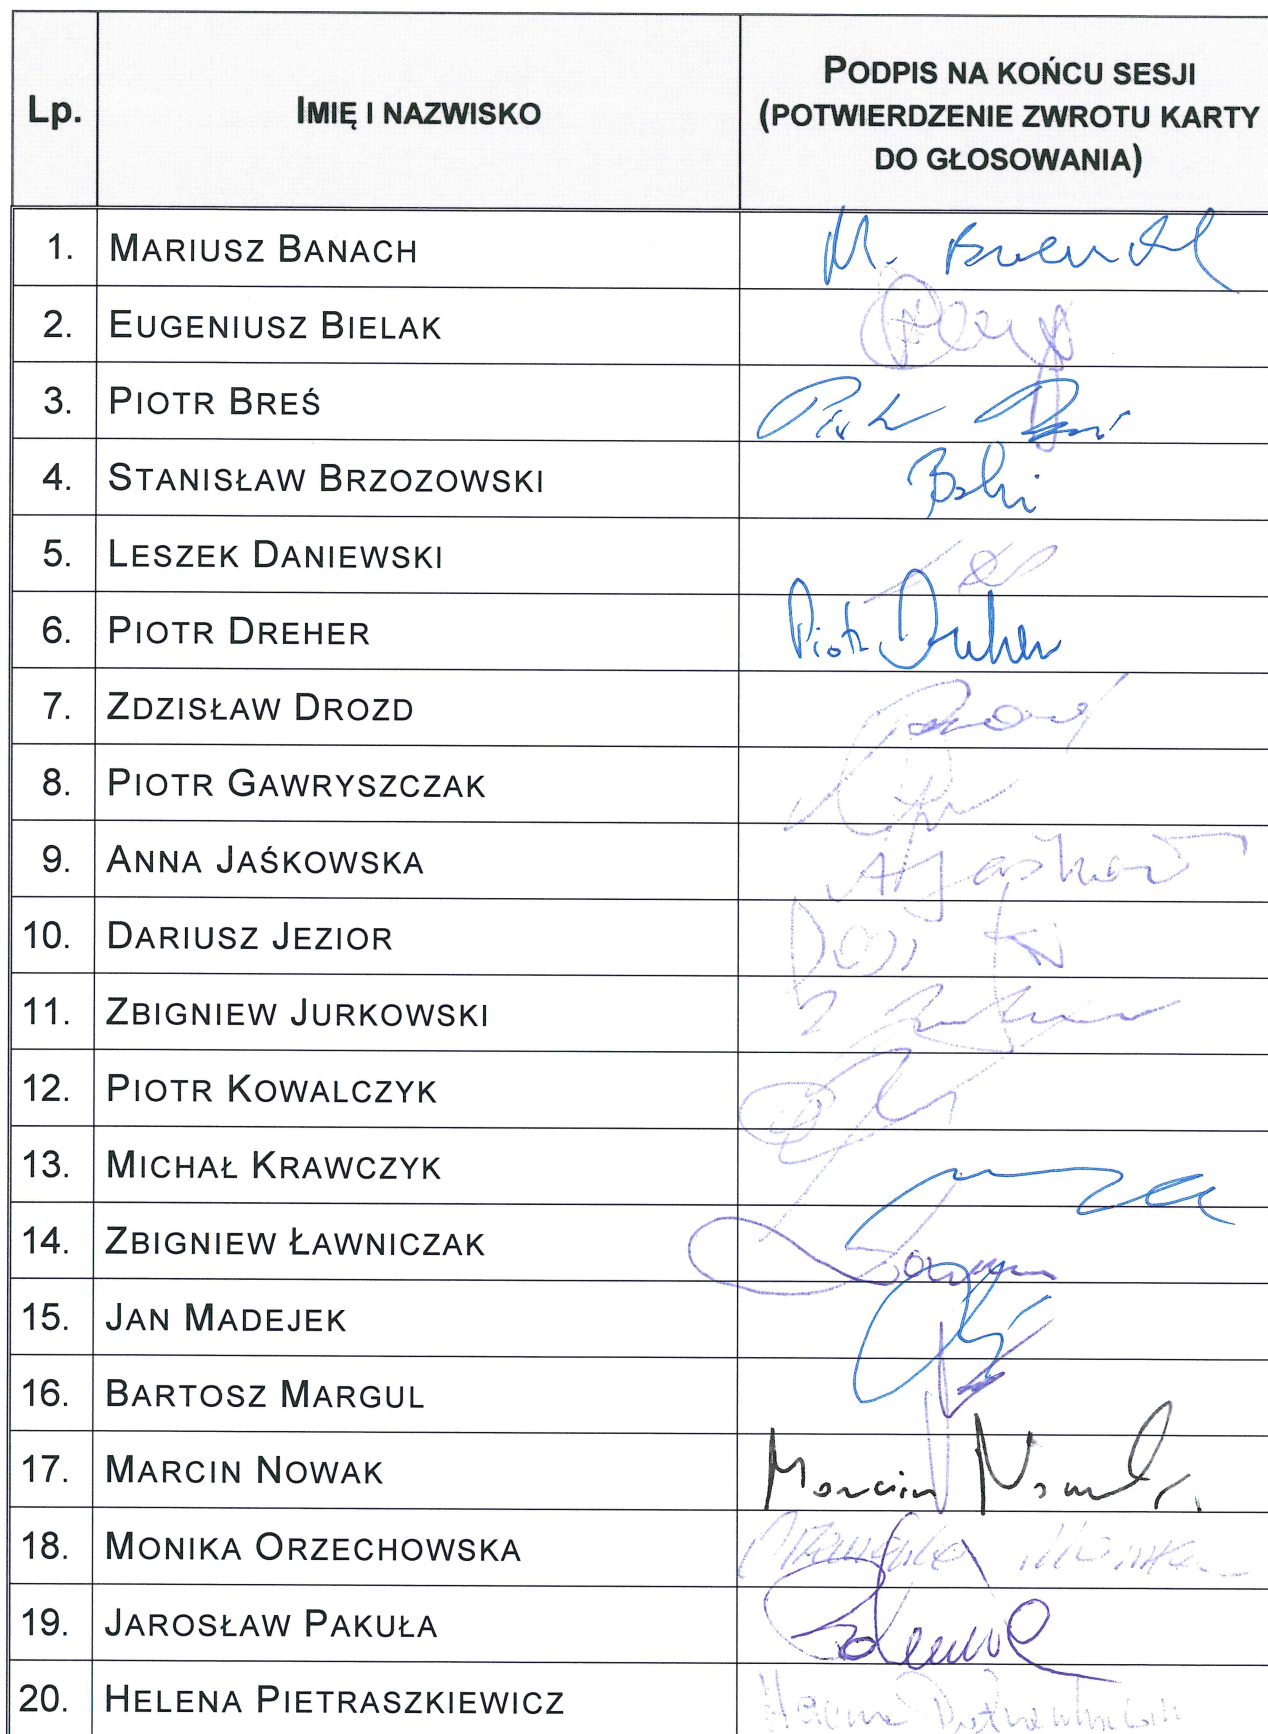 Lp.
IMIĘ I NAZWISKO
PODPIS NA KOŃCU SESJI
(POTWIERDZENIE ZWROTU KARTY
DO GŁOSOWANIA)
1. MARIUSZ BANACH M.
2. EUGENIUSZ BIELAK
3. PIOTR BREŚ
4. STANISŁAW BRZOZOWSKI
5. LESZEK DANIEWSKI
6. PIOTR DREHER Piotr Dreher
7. ZDZISŁAW DROZD
8. PIOTR GAWRYSZCZAK
9. ANNA JAŚKOWSKA
10. DARIUSZ JEZIOR
11. ZBIGNIEW JURKOWSKI
12. PIOTR KOWALCZYK
13. MICHAŁ KRAWCZYK
14. ZBIGNIEW ŁAWNICZAK
15. JAN MADEJEK
16. BARTOSZ MARGUL
17. MARCIN NOWAK Marcin Nowak
18. MONIKA ORZECHOWSKA Monika
19. JAROSŁAW PAKUŁA
20. HELENA PIETRASZKIEWICZ